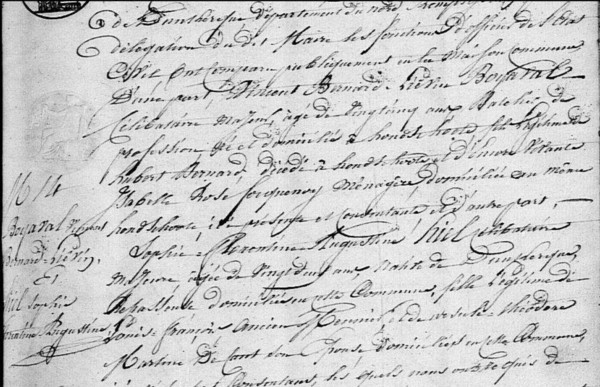 de Dunkerque Département du nord
délégation du dit Maire les fonctions d'officier de l'Etat
Civil, ont comparu publiquement en la Maison Commune
D'une part, Vincent Bernard Liévin Boyaval
Célibataire Majeur, âgé de vingt cinq ans Batelier de
profession né et domicilié à hondschoote, fils légitime de
hubert Bernard, décédé à hondschoote et d'encore vivante
Isabelle Rose Ménagère, domiciliée au même
hondschoote, ici présente et consentante et d'autre part,
Sophie Florentine Augustine hiel Célibataire
Majeure, âgée de vingt deux ans, native de Dunkerque,
Repasseuse domiciliée en cette Commune, fille légitime de
Louis François ancien Meunier et de Ursule théodore
Martine De Son Epouse domiciliés en cette Commune,
Consentans, les quels nous ont requis de
N° 14
Boyaval Vincent
Bernard Liévin,
Et
hiel Sophie
Florentine Augustine